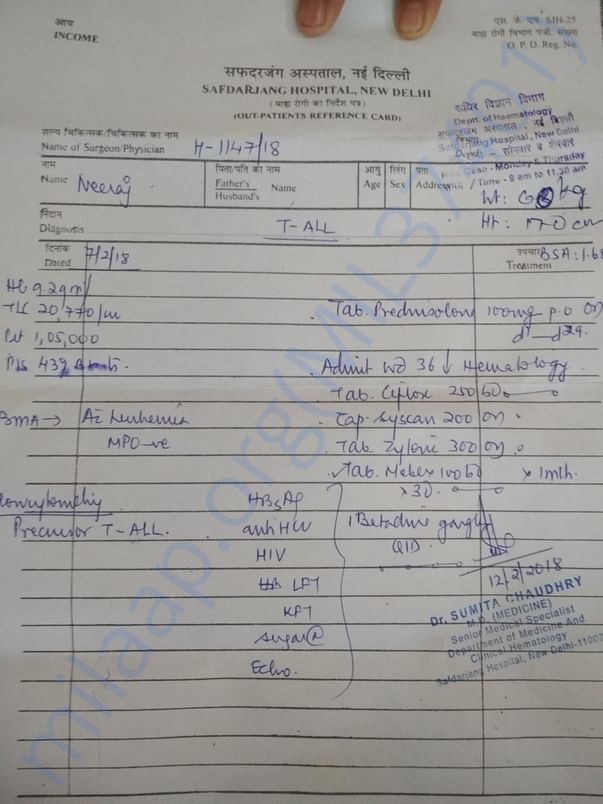 आय
INCOME
एस. जे. एच. SJH-25
बाह्य रोगी विभाग पंजी. संख्या
O. P. D. Reg. No.
सफदरजंग अस्पताल, नई दिल्ली
SAFDARJANG HOSPITAL, NEW DELHI
(बाह्य रोगी का निर्देश पत्र)
(OUT-PATIENTS REFERENCE CARD)
रूधिर विज्ञान विभाग
Deptt. of Haematology
सफदरजंग अस्पताल, नई दिल्ली
Safdarjang Hospital, New Delhi
सोमवार व वीरवार
Case - Monday & Thursday
Time - 9 am to 11.30 am
शल्य चिकित्सक/चिकित्सक का नाम
Name of Surgeon/Physician
H-1147/18
नाम
Name Neeraj
पिता/पति का नाम
Father's
Husband's Name
आयु
Age
लिंग
Sex
पता
Address
Wt: kg
Ht: 170 cm
निदान
Diagnosis T-ALL
दिनांक
Dated 7/2/18
उपचार
Treatment
BSA: 1.68
Hb 9.2gm/
TLC 20,770/
Plt 1,05,000
P/S 43%
Tab. Prednisolone 100mg p.o OD
d1 - d29
Admit wd 36 ↓ Hematology
Tab. Ciflox 250 BD
BMA → Ac Leukemia
Cap. Syscan 200 OD
MPO-ve
Tab. Zyloric 300 OD
Tab. Mebex 100 BD x 1mth.
x 3D.
Flowcytometry
Precursor T-ALL.
HBsAg
anti HCV
HIV
LFT
KFT
Sugar
Echo.
Betadine gargle
QID
12/2/2018
Dr. SUMITA CHAUDHRY
M.D. (MEDICINE)
Senior Medical Specialist
Department of Medicine And
Clinical Hematology
Safdarjang Hospital, New Delhi-11002
milaap.org